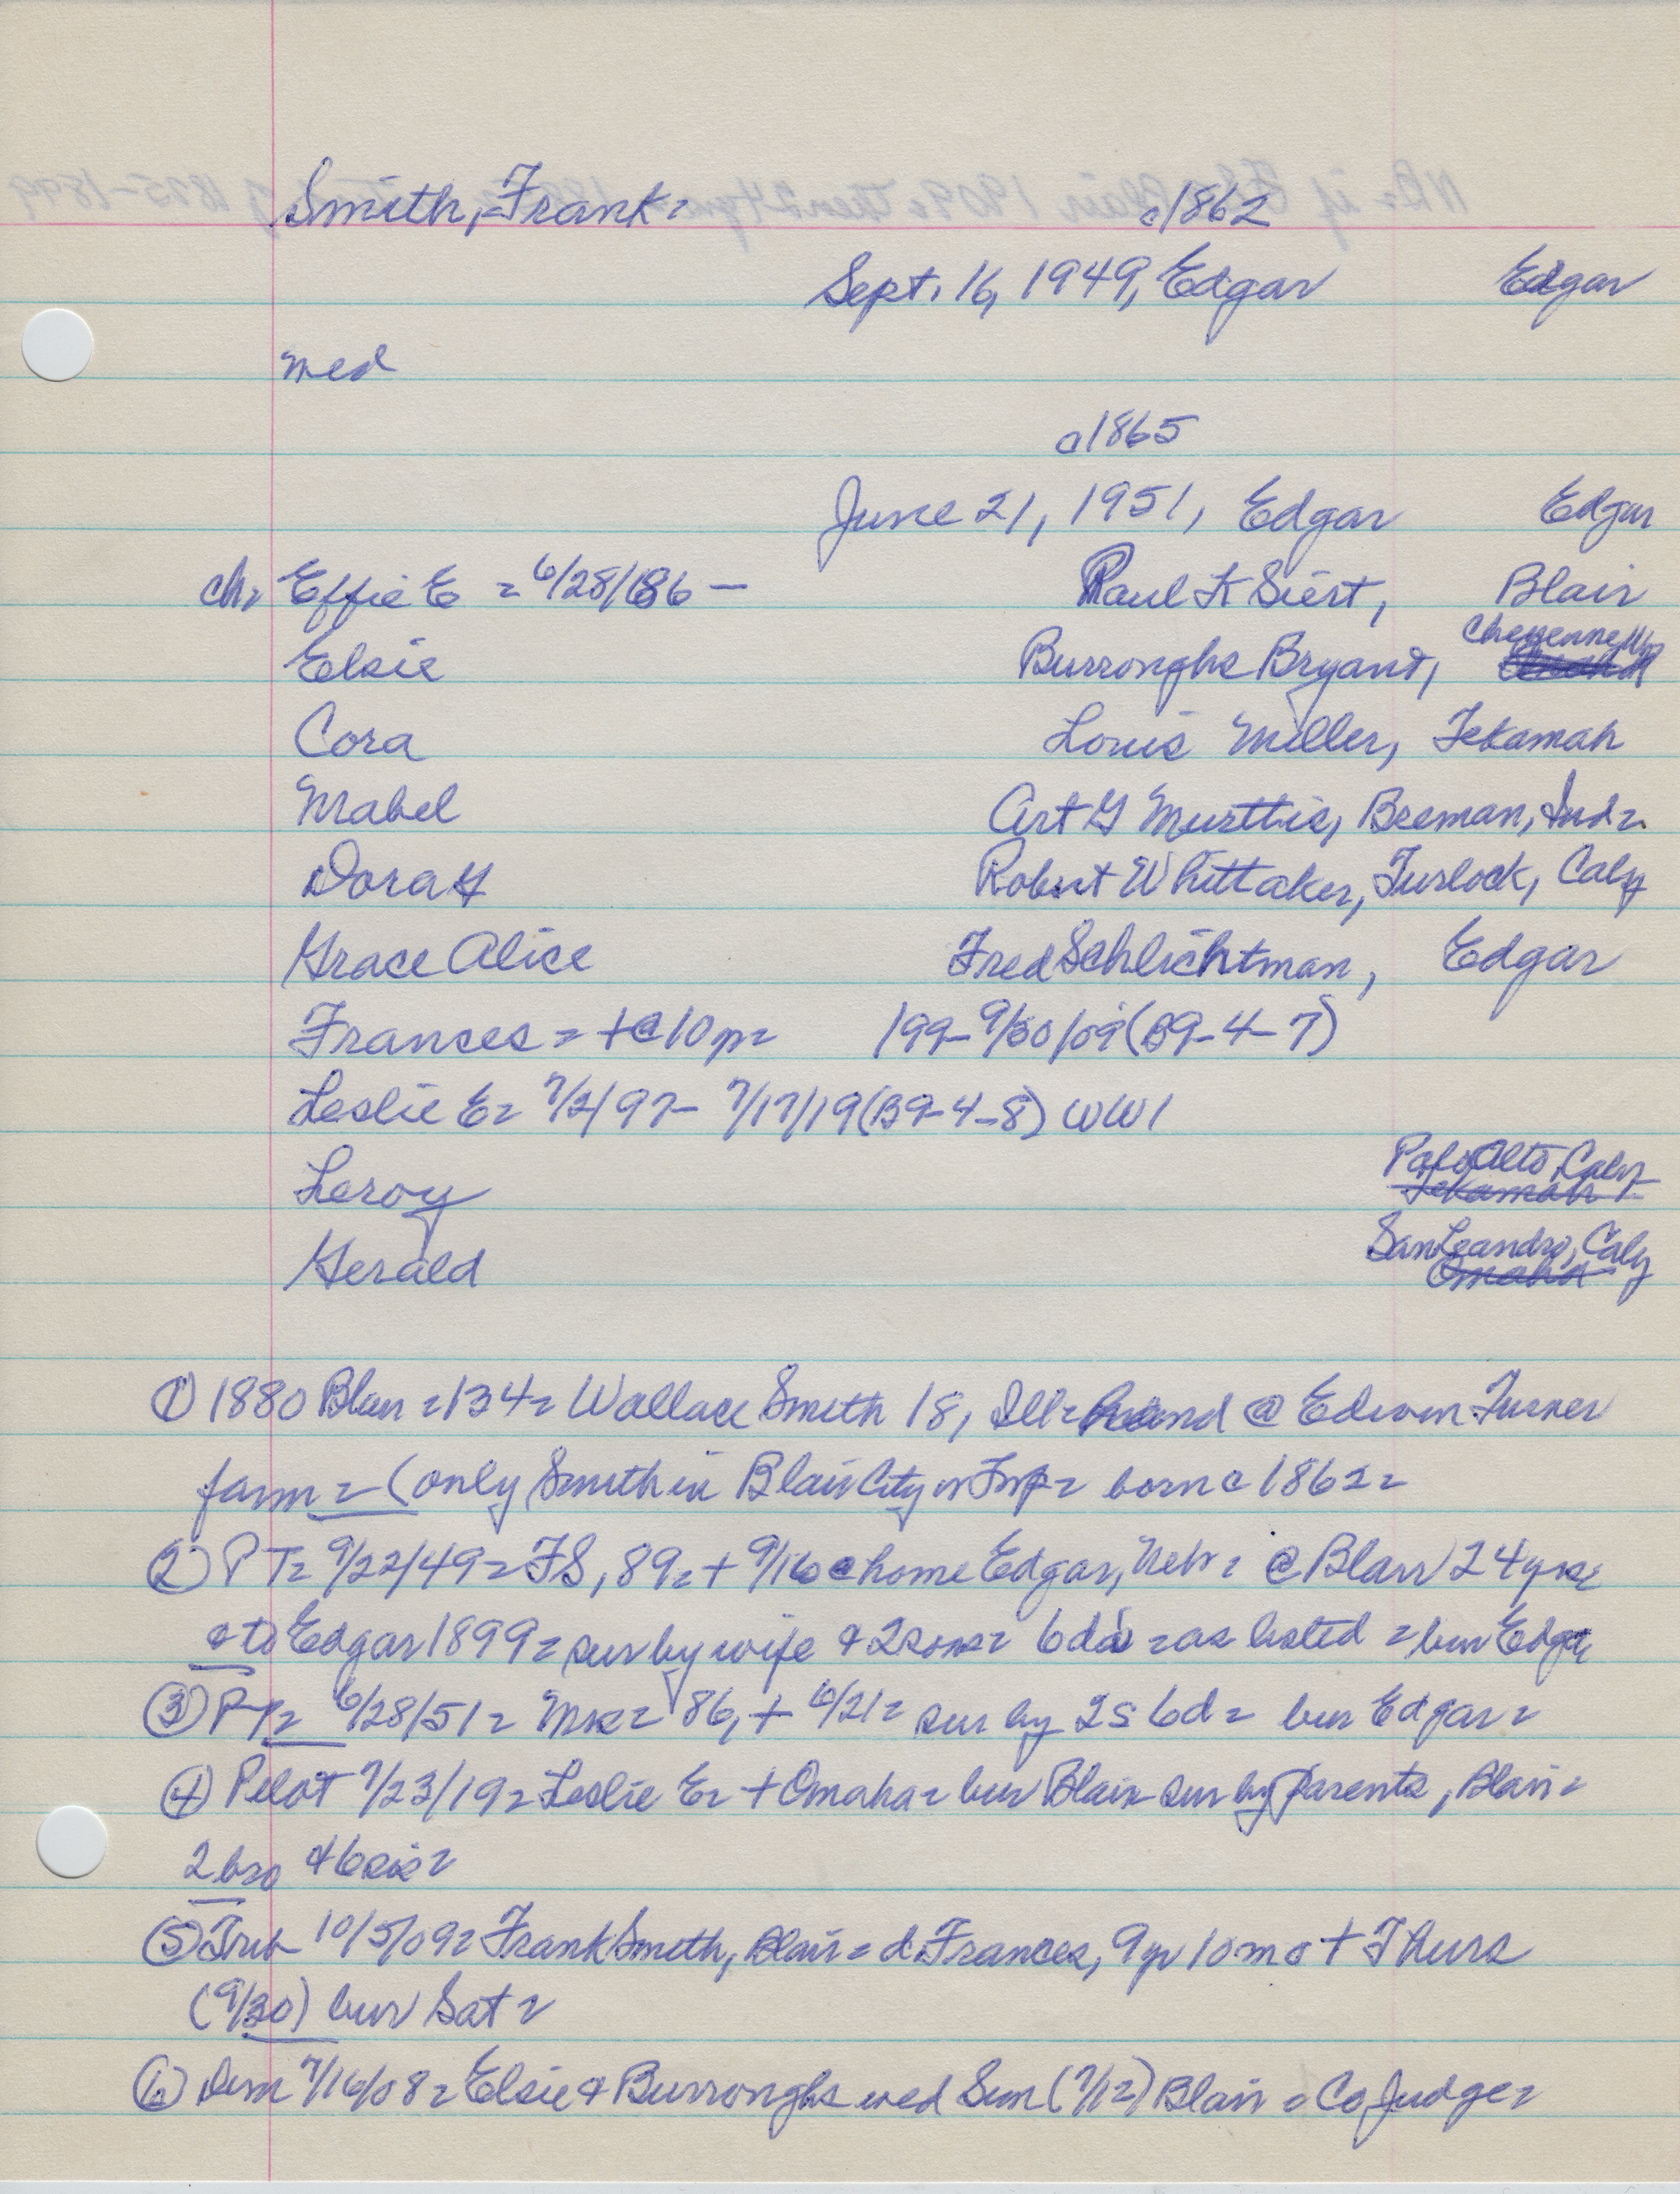 Smith, Frank = c1862
Sept. 16, 1949, Edgar Edgar
med
c1865
June 21, 1951, Edgar Edgar
ch = Effie E = 6/28/1886 - Paul F Siert, Blair
Elsie Burroughs Bryant, Cheyenne Wy
Cora Louis Miller, Tekamah
Mabel Art G Murttis, Breman, Ind =
Dora H Robert Whittaker, Turlock, Calif
Grace Alice Fred Schlichtman, Edgar
Frances = + @ 10 yr = 199- 9/30/09 (B9-4-7)
Leslie E = 7/2/97 - 7/17/19 (B9-4-8) WW1
Leroy Palo Alto, Calif Tekamah
Gerald San Leandro, Calif Omaha
① 1880 Blair = 134 = Wallace Smith 18, Ill = hand @ Edwin Turner
farm = (only Smith in Blair City or Twp = born c 1862 =
② PT = 9/22/49 = FS, 89 = + 9/16 @ home Edgar, Nebr = @ Blair 24 yrs
& to Edgar 1899 = sur by wife & 2 sons = 6 da's = as listed = bur Edgar
③ PT = 6/28/51 = Mrs = 86, + 6/21 = sur by 2s 6d = bur Edgar =
④ Pilot 7/23/19 = Leslie E = + Omaha = bur Blair sur by parents, Blair =
2 bro & 6 sis =
⑤ Trib 10/5/09 = Frank Smith, Blair = d. Frances, 9 yr 10 mo + Thurs
(9/30) bur Sat =
⑥ Dem 7/16/08 = Elsie & Burroughs wed Sun (7/12) Blair = Co Judge =